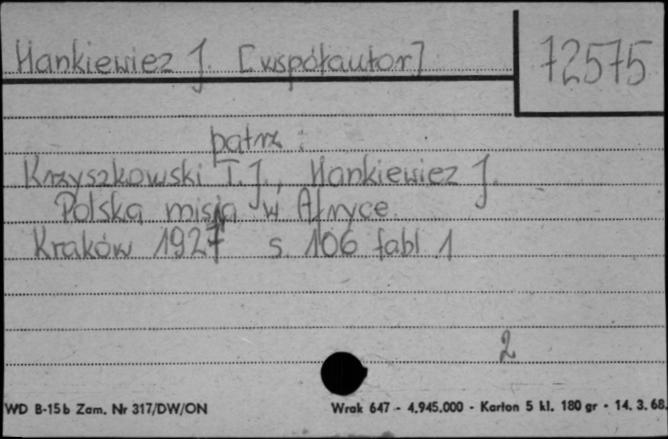 Hankiewicz J. [współautor]
72575
patrz:
Krzyszkowski T.J., Hankiewicz J.
Polska misja w Afryce.
Kraków 1927 s. 106 tabl 1
2
WD B-15b Zam. Nr 317/DW/ON
Wrak 647 - 4.945.000 - Karton 5 kl. 180 gr - 14. 3. 68.